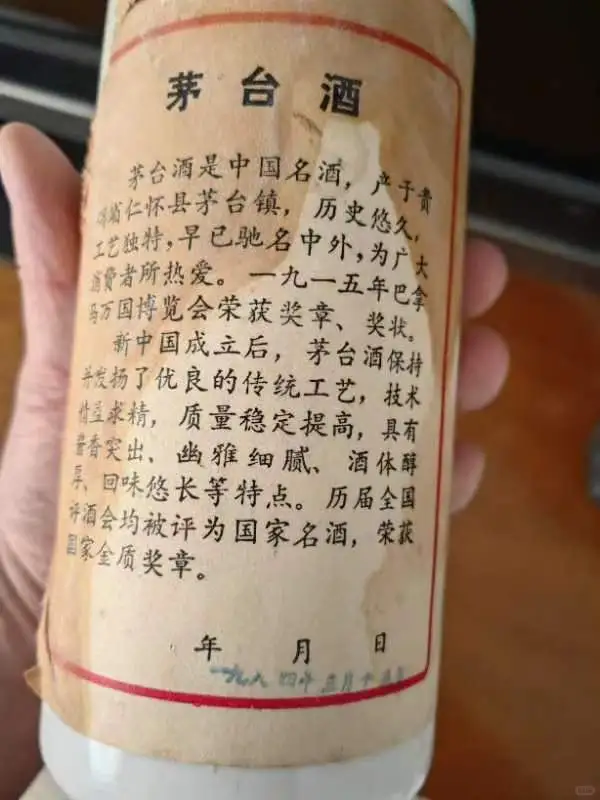 茅台酒
茅台酒是中国名酒，产于贵
仁怀县茅台镇，历史悠久，
工艺独特，早已驰名中外，为广大
消费者所热爱。一九一五年巴拿
马万国博览会荣获奖章、奖状。
新中国成立后，茅台酒保持
并发扬了优良的传统工艺，技术
精益求精，质量稳定提高，具有
酱香突出、幽雅细腻、酒体醇
厚、回味悠长等特点。历届全国
评酒会均被评为国家名酒，荣获
国家金质奖章。
年 月 日
一九八四年